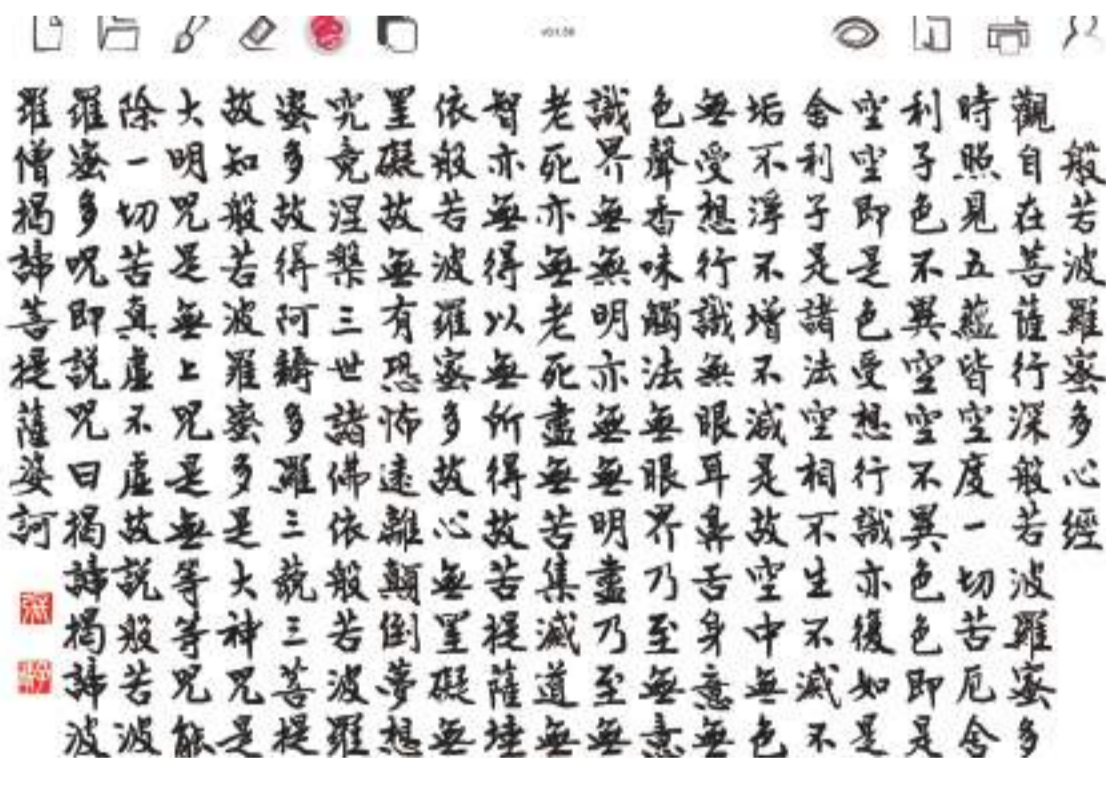 般若波羅蜜多心經
觀自在菩薩行深般若波羅蜜多
時照見五蘊皆空度一切苦厄舍
利子色不異空空不異色色即是
空空即是色受想行識亦復如是
舍利子是諸法空相不生不滅不
垢不淨不增不減是故空中無色
無受想行識無眼耳鼻舌身意無
色聲香味觸法無眼界乃至無意
識界無無明亦無無明盡乃至無
老死亦無老死盡無苦集滅道無
智亦無得以無所得故苦提薩埵
依般若波羅蜜多故心無罣礙無
罣礙故無有恐怖遠離顛倒夢想
究竟涅槃三世諸佛依般若波羅
蜜多故得阿耨多羅三藐三菩提
故知般若波羅蜜多是大神咒是
大明咒是無上咒是無等等咒能
除一切苦真虛不虛故說般若波
羅蜜多咒即說咒曰揭諦揭諦波
羅僧揭諦菩提薩婆訶